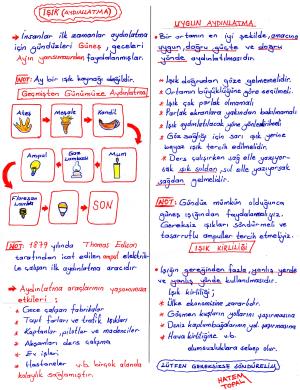 IŞIK (AYDINLATMA)
→ İnsanlar ilk zamanlar aydınlatma
için gündüzleri Güneş, geceleri
Ay'ın yansımasından faydalanmışlar.
NOT: Ay bir ışık kaynağı değildir.
Geçmişten Günümüze Aydınlatma
Ateş
Meşale
Kandil
Ampul
Gaz Lambası
Mum
Floresan Lamba
SON
NOT: 1879 yılında Thomas Edison
tarafından icat edilen ampul elektrik-
le çalışan ilk aydınlatma aracıdır
→ Aydınlatma araçlarının yaşamımıza
etkileri:
* Gece çalışan fabrikalar
* Taşıt farları ve trafik ışıkları
* Kaptanlar, pilotlar ve madenciler
* Akşamları ders çalışma
* Ev işleri
* Hastaneler v.b. birçok alanda
kolaylık sağlamıştır.
UYGUN AYDINLATMA
* Bir ortamın en iyi şekilde, amacına
uygun, doğru güçte ve doğru
yönde aydınlatılmasıdır.
* Işık doğrudan göze gelmemelidir.
* Ortamın büyüklüğüne göre seçilmeli.
* Işık çok parlak olmamalı
* Parlak ekranlara yakından bakılmamalı
* Işık aydınlatılacak yöne yönlendirilmeli
* Göz sağlığı için sarı ışık yerine
beyaz ışık tercih edilmelidir.
* Ders çalışırken sağ elle yazıyor-
sak ışık soldan, sol elle yazıyorsak
sağdan gelmelidir.
NOT: Gündüz mümkün olduğunca
güneş ışığından faydalanmalıyız.
Gereksiz ışıkları söndürmeli ve
tasarruflu ampuller tercih etmeliyiz.
IŞIK KİRLİLİĞİ
* Işığın gereğinden fazla, yanlış yerde
ve yanlış yönde kullanılmasıdır.
Işık kirliliği;
* Ülke ekonomisine zararlıdır.
* Göçmen kuşların yollarını şaşırmasına
* Deniz kaplumbağalarının yol şaşırmasına
* Hava kirliliğine v.b.
olumsuzluklara sebep olur.
LÜTFEN GEREKSİZSE SÖNDÜRELİM
HATEM
TOPAL